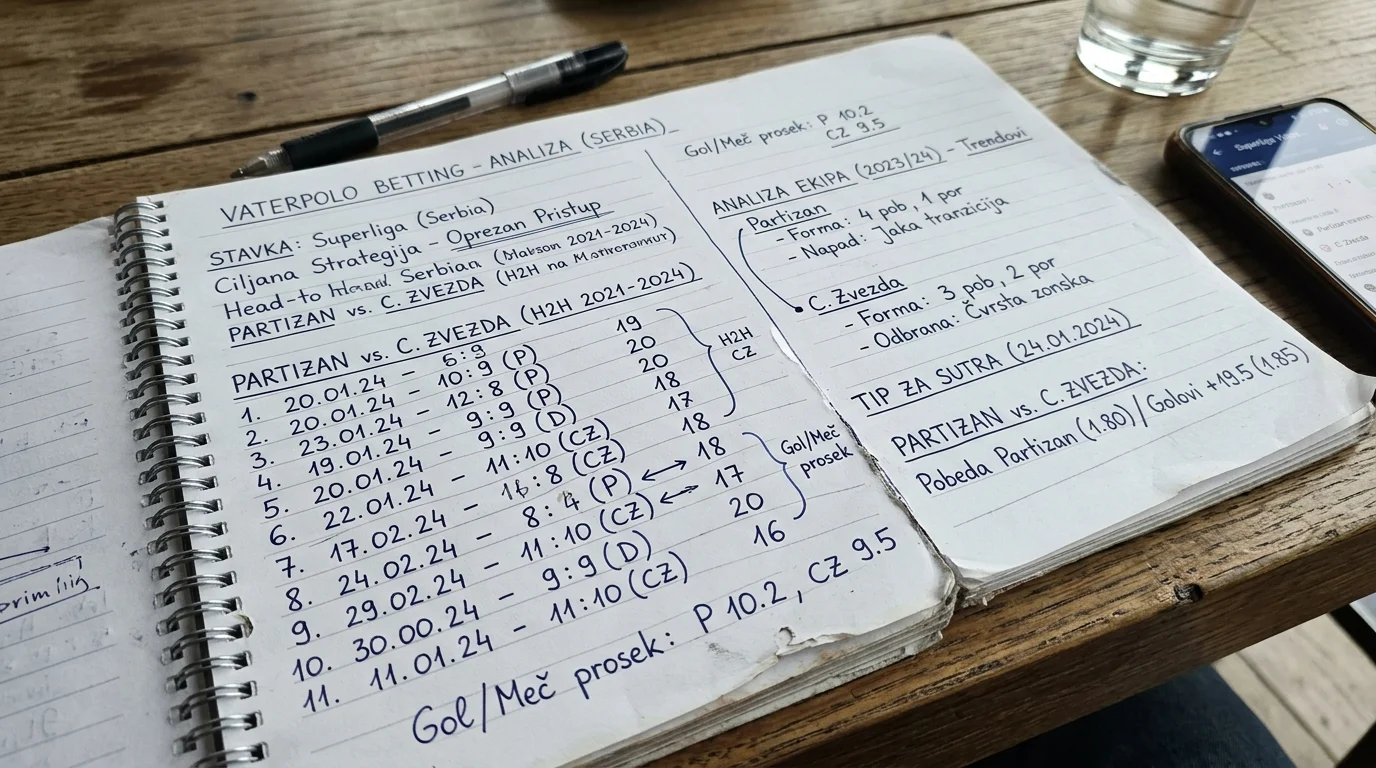 VATERPOLO BETTING - ANALIZA (SERBIA)
STAVKA: Superliga (Serbia)
Ciljana Strategija - Oprezan Pristup
Head-to Serbian (2021-2024)
PARTIZAN vs. C. ZVEZDA (H2H na
PARTIZAN vs. C. ZVEZDA (H2H 2021-2024)
1. 20.01.24 - 6:9 19
2. 20.01.24 - 10:9 (P) 20
3. 23.01.24 - 12:8 (P) 20
4. 19.01.24 - 9:9 (P) 18
5. 20.01.24 - 9:9 (D) 17
6. 22.01.24 - 11:10 (CZ) 18
7. 17.02.24 - :8 (CZ) 18
8. 24.02.24 - 8:4 (P) 17
9. 29.02.24 - 11:10 (CZ) 20
10. 30.00.24 - 9:9 (D) 16
11. 11.01.24 - 11:10 (CZ)
H2H
CZ
Gol/Meč
prosek
Gol/Meč prosek: P 10.2, CZ 9.5
Gol/Meč prosek: P 10.2
CZ 9.5
ANALIZA EKIPA (2023/24) - Trendovi
Partizan
- Forma: 4 pob, 1 por
- Napad: Jaka tranzicija
C. Zvezda
- Forma: 3 pob, 2 por
- Odbrana: Čvrsta zonska
TIP ZA SUTRA (24.01.2024)
PARTIZAN vs. C. ZVEZDA:
Pobeda Partizan (1.80) / Golovi +19.5 (1.85)